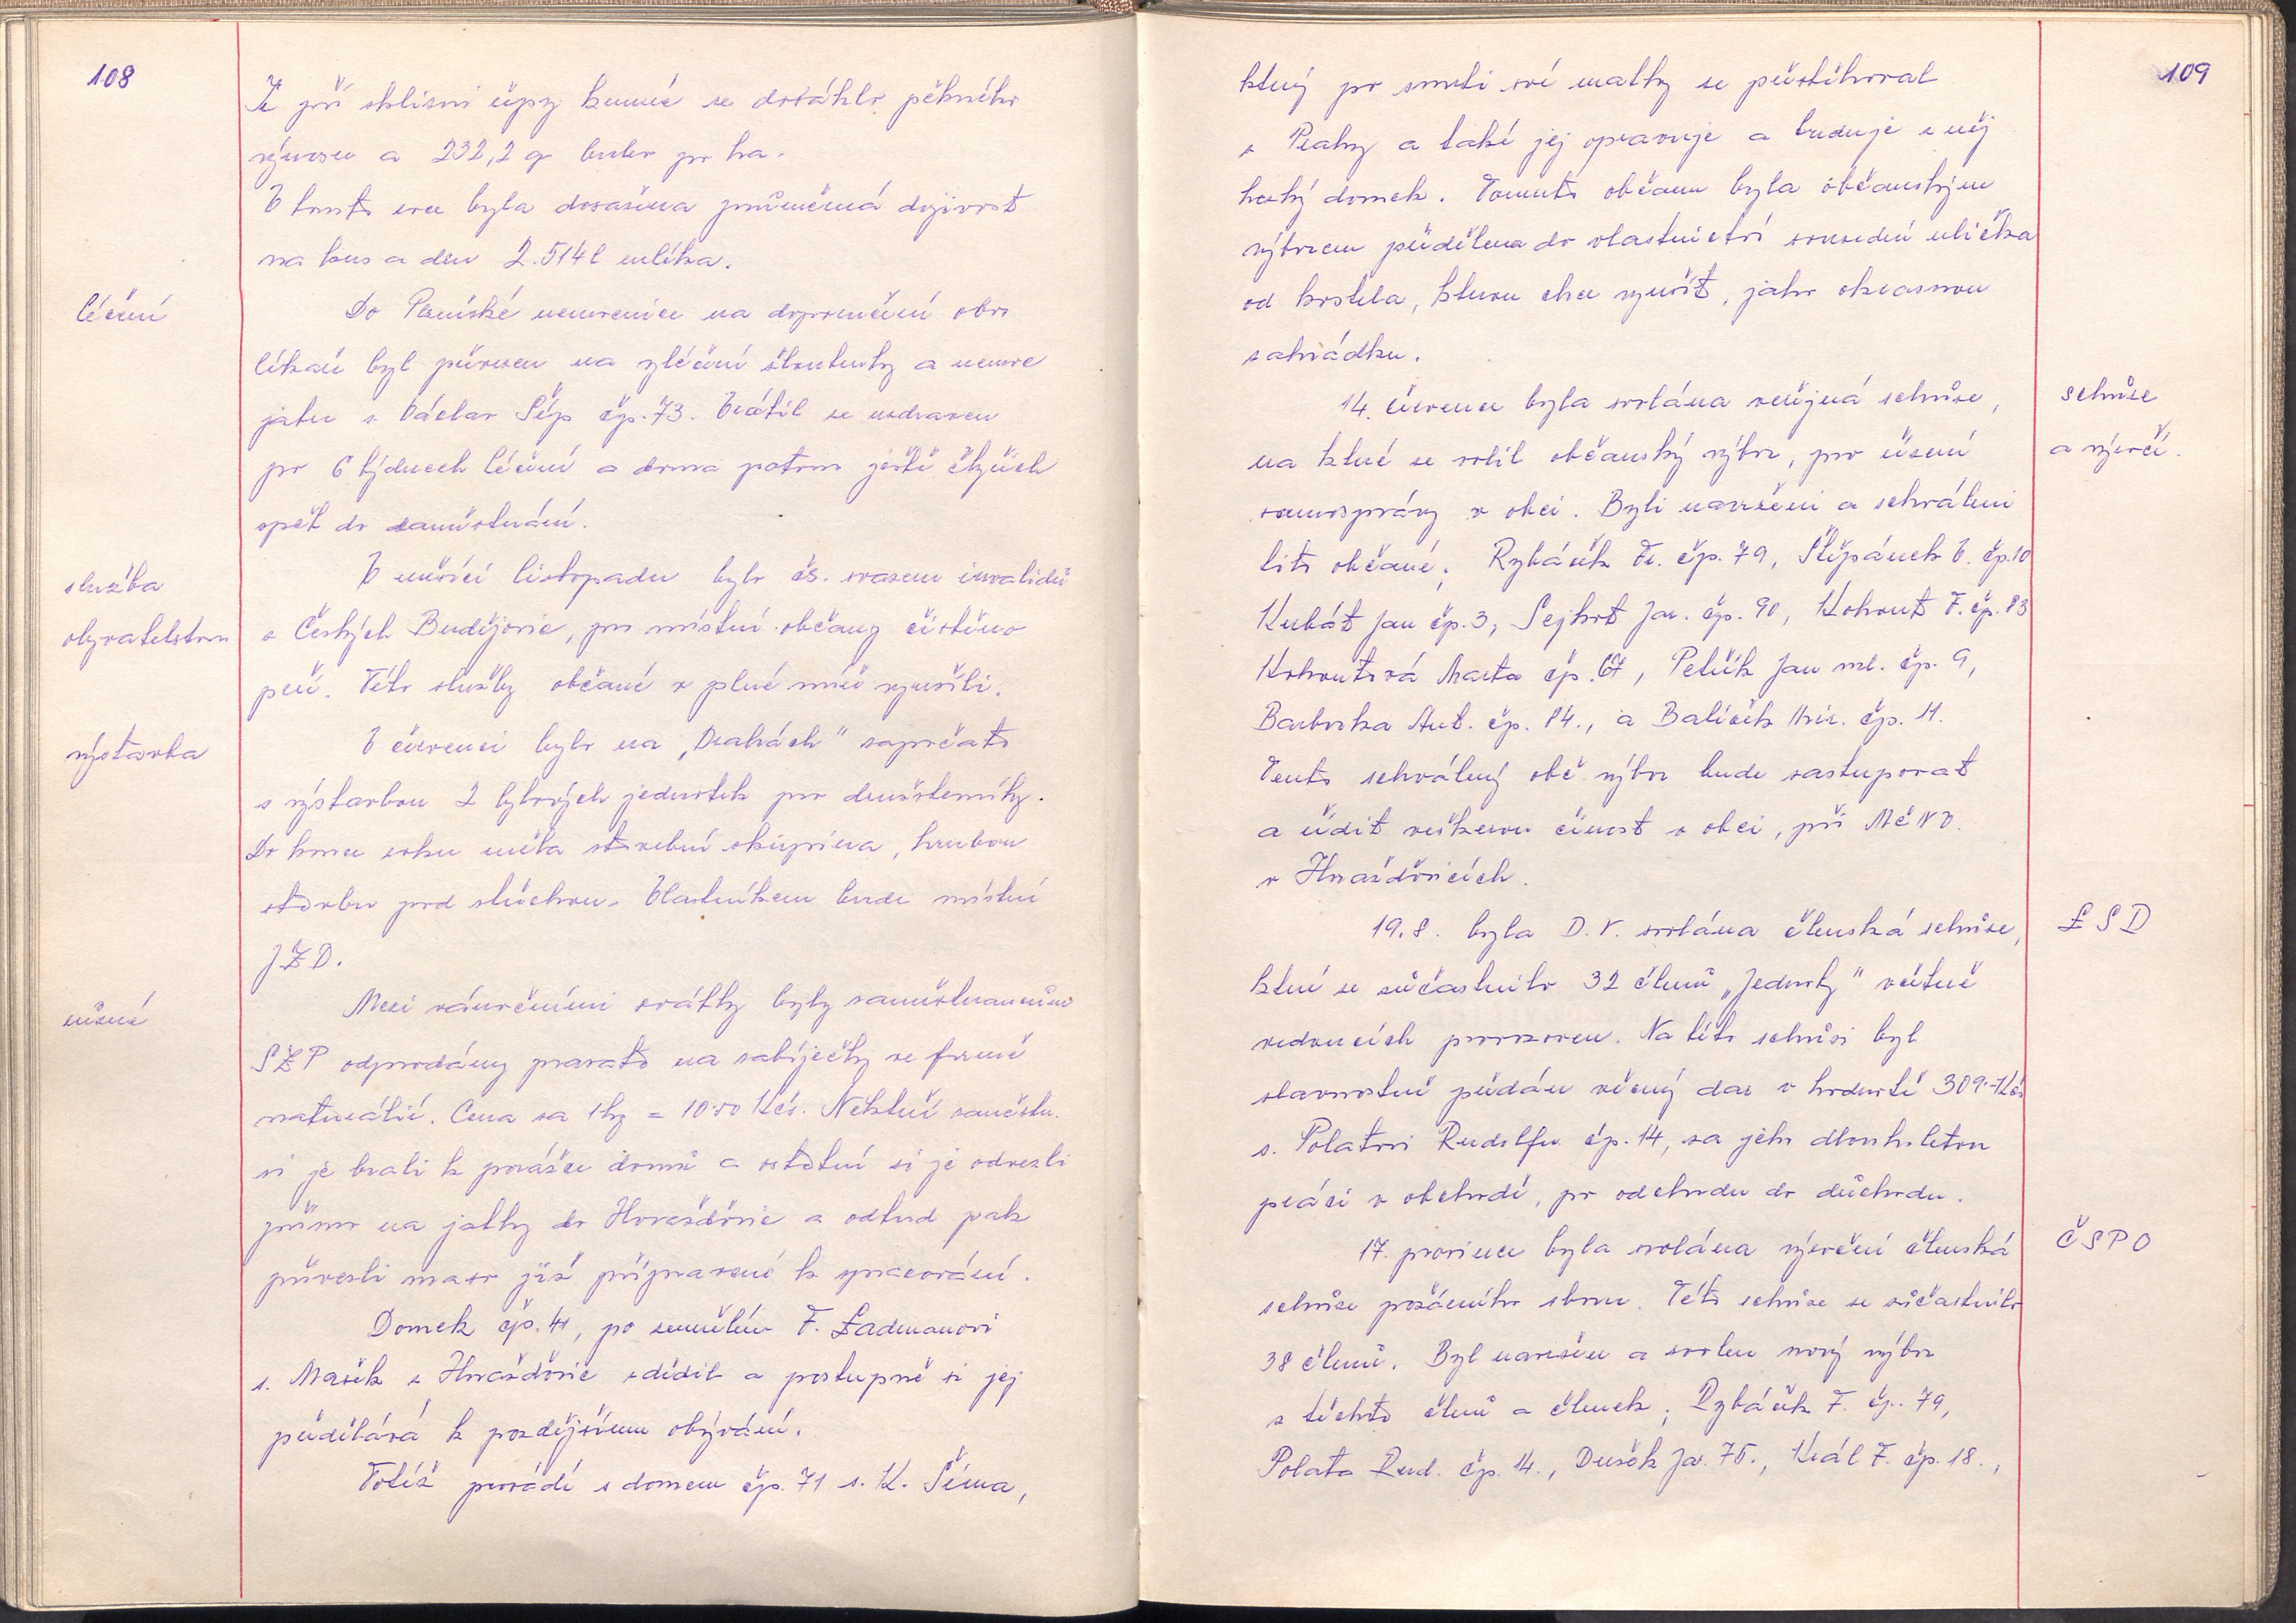 108
Že při sklizni řepy krmné se dosáhlo pěkného
výnosu a 232,2 q bulev po ha.
V tomto roce byla dosažena průměrná dojivost
na kus a den 2.514 l mléka.
léčení
Do Plánské nemocnice na doporučení obv.
lékaře byl převezen na vyléčení žloutenky a nemoc
jater s. Václav Šíp čp. 73. Vrátil se uzdraven
po 6 týdnech léčení a doma potom ještě čtyřech
opět do zaměstnání.
služba
obyvatelstvu
V měsíci listopadu bylo čs. svazem invalidů
z Českých Budějovic, pro místní občany čištěno
peří. Této služby občané v plné míře využili.
výstavba
V červenci bylo na „Drahách" započato
s výstavbou 2 bytových jednotek pro družstevníky.
Do konce roku měla stavební skupina, hrubou
stavbu pod střechou. Vlastníkem bude místní
JZD.
různé
Mezi vánočními svátky byly zaměstnancům
SZP odprodány prasata na zabíječky ve formě
naturálií. Cena za 1 kg = 10.50 Kčs. Někteří zaměstn.
si je brali k porážce domů a ostatní si je odvezli
přímo na jatky do Horažďovic a odtud pak
přivezli maso již připravené k zpracování.
Domek čp. 41, po zemřelém F. Ladmanovi
s. Mašek z Horažďovic zdědil a postupně si jej
předělává k pozdějšímu obývání.
Totéž provádí s domem čp. 71 s. K. Šíma,
109
který po smrti své matky se přestěhoval
z Prahy a také jej opravuje a buduje z něj
hezký domek. Tomuto občanu byla občanským
výborem přidělena do vlastnictví sousední ulička
od kostela, kterou chce využít, jako okrasnou
zahrádku.
schůze
a výročí.
14. července byla svolána veřejná schůze,
na které se volil občanský výbor, pro řízení
samosprávy v obci. Byli navrženi a schváleni
tito občané; Rybáček Fr. čp. 79, Štěpánek V. čp. 10
Kubát Jan čp. 3, Sejkot Jar. čp. 90, Kohout F. čp. 83
Kohoutová Marta čp. 67, Pelčík Jan ml. čp. 9,
Barborka Ant. čp. 84., a Balíček Mir. čp. 11.
Tento schválený obč. výbor bude zastupovat
a řídit veškerou činost v obci, při MěNV.
v Horažďovicích.
LSD
19.8. byla D.V. svolána členská schůze,
které se zúčastnilo 32 členů „Jednoty" včetně
vedoucích provozoven. Na této schůzi byl
slavnostně předán věcný dar v hodnotě 309.-Kčs
s. Polatovi Rudolfu čp. 14, za jeho dlouholetou
práci v obchodě, po odchodu do důchodu.
ČSPO
17. prosince byla svolána výroční členská
schůze požárního sboru. Této schůze se zúčastnilo
38 členů. Byl navržen a zvolen nový výbor
z těchto členů a členek; Rybáček F. čp. 79,
Polata Rud. čp. 14., Dušek Ja. 75., Král F. čp. 18.,